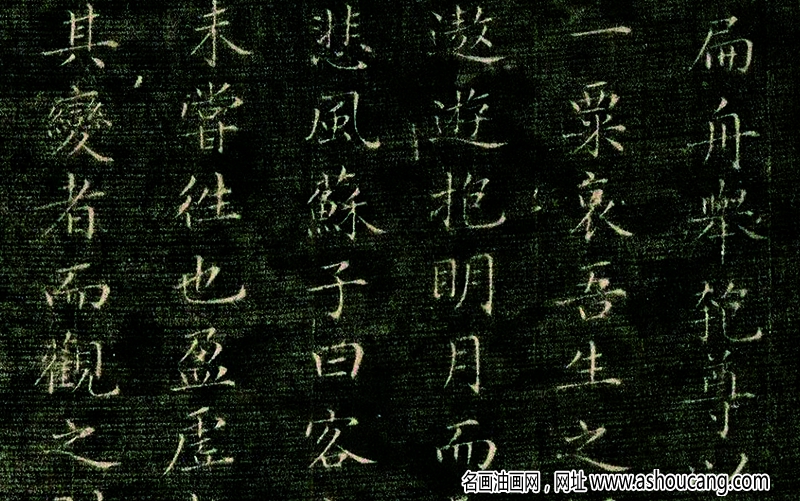 扁舟舉匏尊
一粟哀吾生之
遨遊抱明月而
悲風蘇子曰客
未嘗往也盈虛
其變者而觀之
名画油画网，网址 www.ashoucang.com